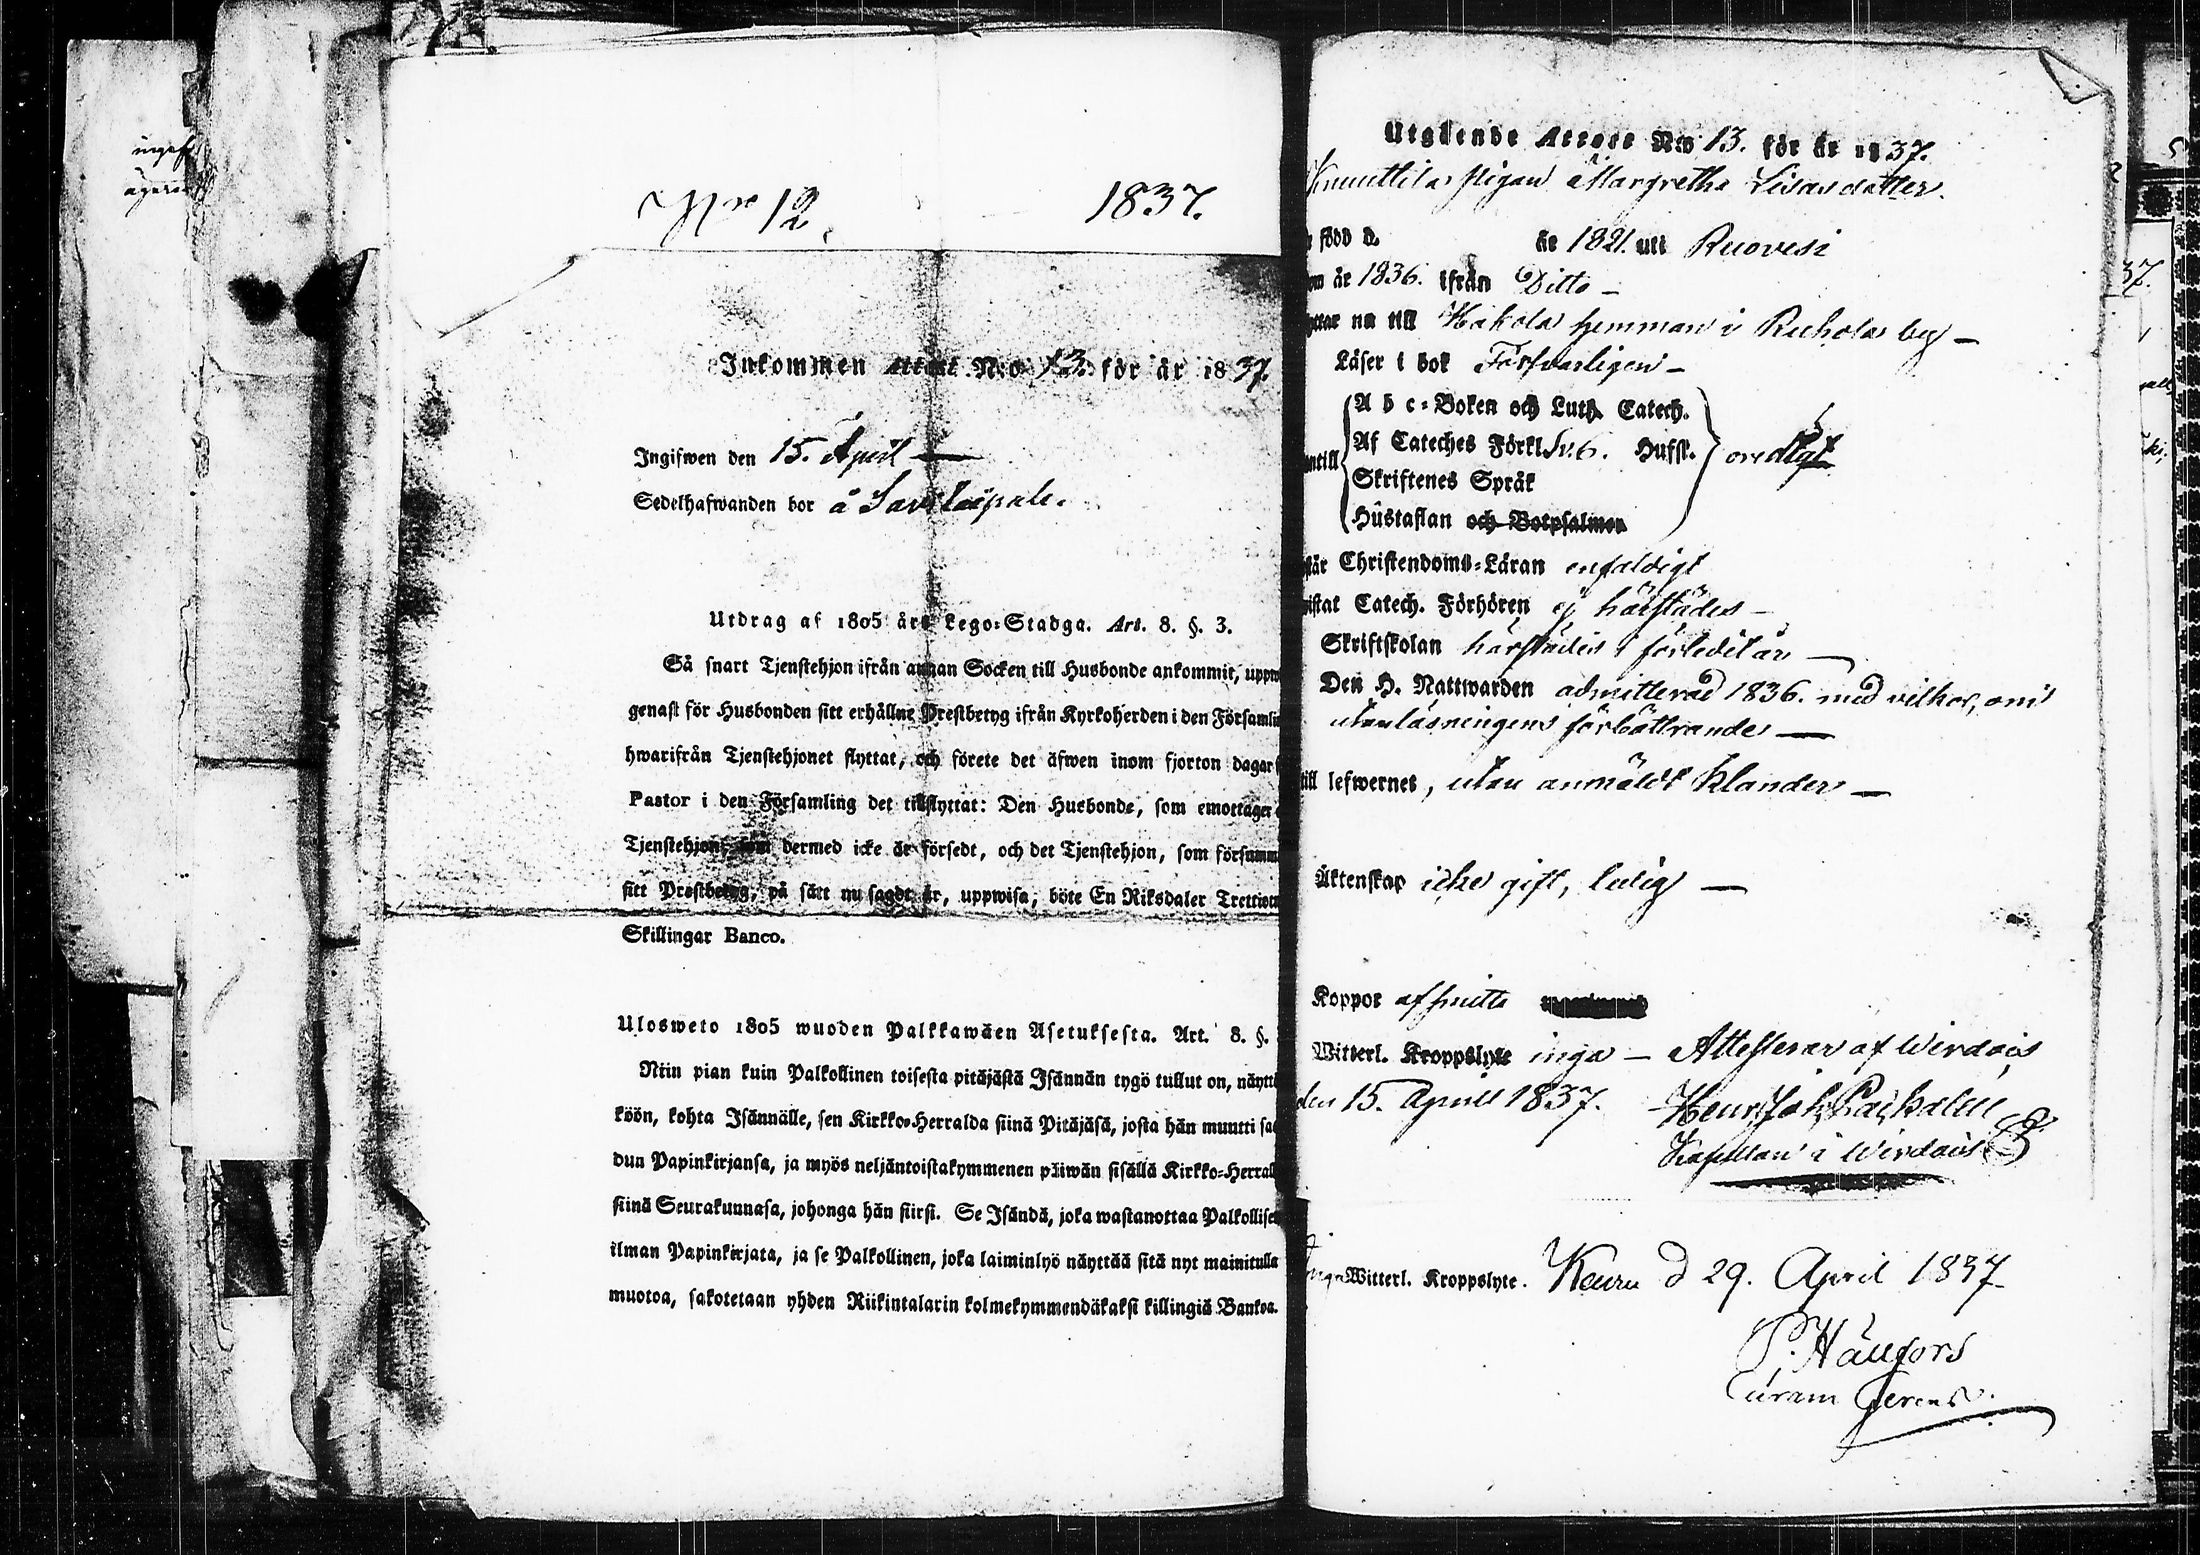 Nr 12. 1837.
Inkommen Attest N:o 13. för år 1837.
Ingifwen den 15. April —
Sedelhafwanden bor å
Utdrag af 1805 års Lego-Stadga. Art. 8. §. 3.
Så snart Tjenstehjon ifrån annan Socken till Husbonde ankommit, uppw
genast för Husbonden sitt erhållne Prestbetyg ifrån Kyrkoherden i den Församli
hwarifrån Tjenstehjonet flyttat, och förete det äfwen inom fjorton dagar
Pastor i den Församling det tillflyttat: Den Husbonde, som emottager
Tjenstehjon, som dermed icke är försedt, och det Tjenstehjon, som försumm
sitt Prestbetyg, på sätt nu sagdt är, uppwisa, böte En Riksdaler Trettiotw
Skillingar Banco.
Ulosweto 1805 wuoden Palkkawäen Asetuksesta. Art. 8. §.
Niin pian kuin Palkollinen toisesta pitäjästä Isännän tygö tullut on, näytt
köön, kohta Isännälle, sen Kirkko-Herralda siinä Pitäjäsä, josta hän muutti sa
dun Papinkirjansa, ja myös neljäntoistakymmenen päiwän sisällä Kirkko-Herrall
siinä Seurakunnasa, johonga hän siirsi. Se Isändä, joka wastanottaa Palkollisen
ilman Papinkirjata, ja se Palkollinen, joka laiminlyö näyttää sitä nyt mainitulla
muotoa, sakotetaan yhden Riikintalarin kolmekymmendäkaksi killingiä Bankoa.
Utgående Attest N:o 13. för år 1837.
pigan Margretha Lisasdotter.
född d. år 1821. uti Ruovesi
om år 1836. ifrån Ditto —
yttar nu till Hakola hemman i Ruhola by —
Läser i bok Försvarligen —
A b c-Boken och Luth. Catech.
Af Cateches Förkl. Sv. 6. Husft.
antill
Skriftenes Språk
Hustaflan och Botpsalmen
oredigt
står Christendoms-Läran enfaldigt
istat Catech. Förhören ej härstädes —
Skriftskolan härstädes förledit år —
Den H. Nattwarden admitterad 1836. med vilkor, om
utanläsningens förbättrande —
till lefwernet, utan anmäldt klander —
Äktenskap icke gift, ledig —
Koppor af smitta
Witterl. Kroppslyte inga — Attesterar af Wirdois
den 15. April 1837. Henr. Joh.
Kapellan i Wirdois
Witterl. Kroppslyte. Keuru d 29. April 1837
P. Hällfors
Curam Gerens.